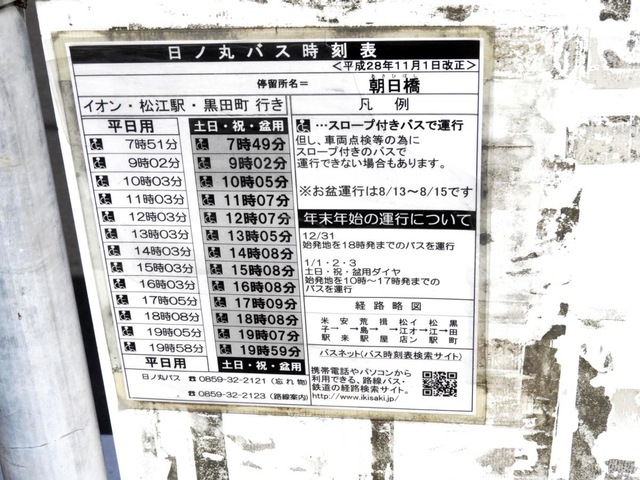 日ノ丸バス時刻表
<平成28年11月1日改正>
停留所名=
あさひばし
朝日橋
イオン・松江駅・黒田町 行き
平日用 土日・祝・盆用
7時51分 7時49分
9時02分 9時02分
10時03分 10時05分
11時03分 11時07分
12時03分 12時07分
13時03分 13時05分
14時03分 14時08分
15時03分 15時08分
16時03分 16時08分
17時05分 17時09分
18時08分 18時08分
19時05分 19時07分
19時58分 19時59分
平日用 土日・祝・盆用
日ノ丸バス ☎ 0859-32-2121 (忘れ物)
☎ 0859-32-2123 (路線案内)
凡 例
…スロープ付きバスで運行
但し、車両点検等の為に
スロープ付きのバスで
運行できない場合もあります。
※お盆運行は8/13~8/15です
年末年始の運行について
12/31
始発地を18時発までのバスを運行
1/1・2・3
土日・祝・盆用ダイヤ
始発地を10時~17時発までの
バスを運行
経 路 略 図
米 安 荒 揖 松 イ 松 黒
子─→─島─→─江オ→江─田
駅 来 駅 屋 店 ン 駅 町
バスネット(バス時刻表検索サイト)
携帯電話やパソコンから
利用できる、路線バス・
鉄道の経路検索サイト。
http://www.ikisaki.jp/